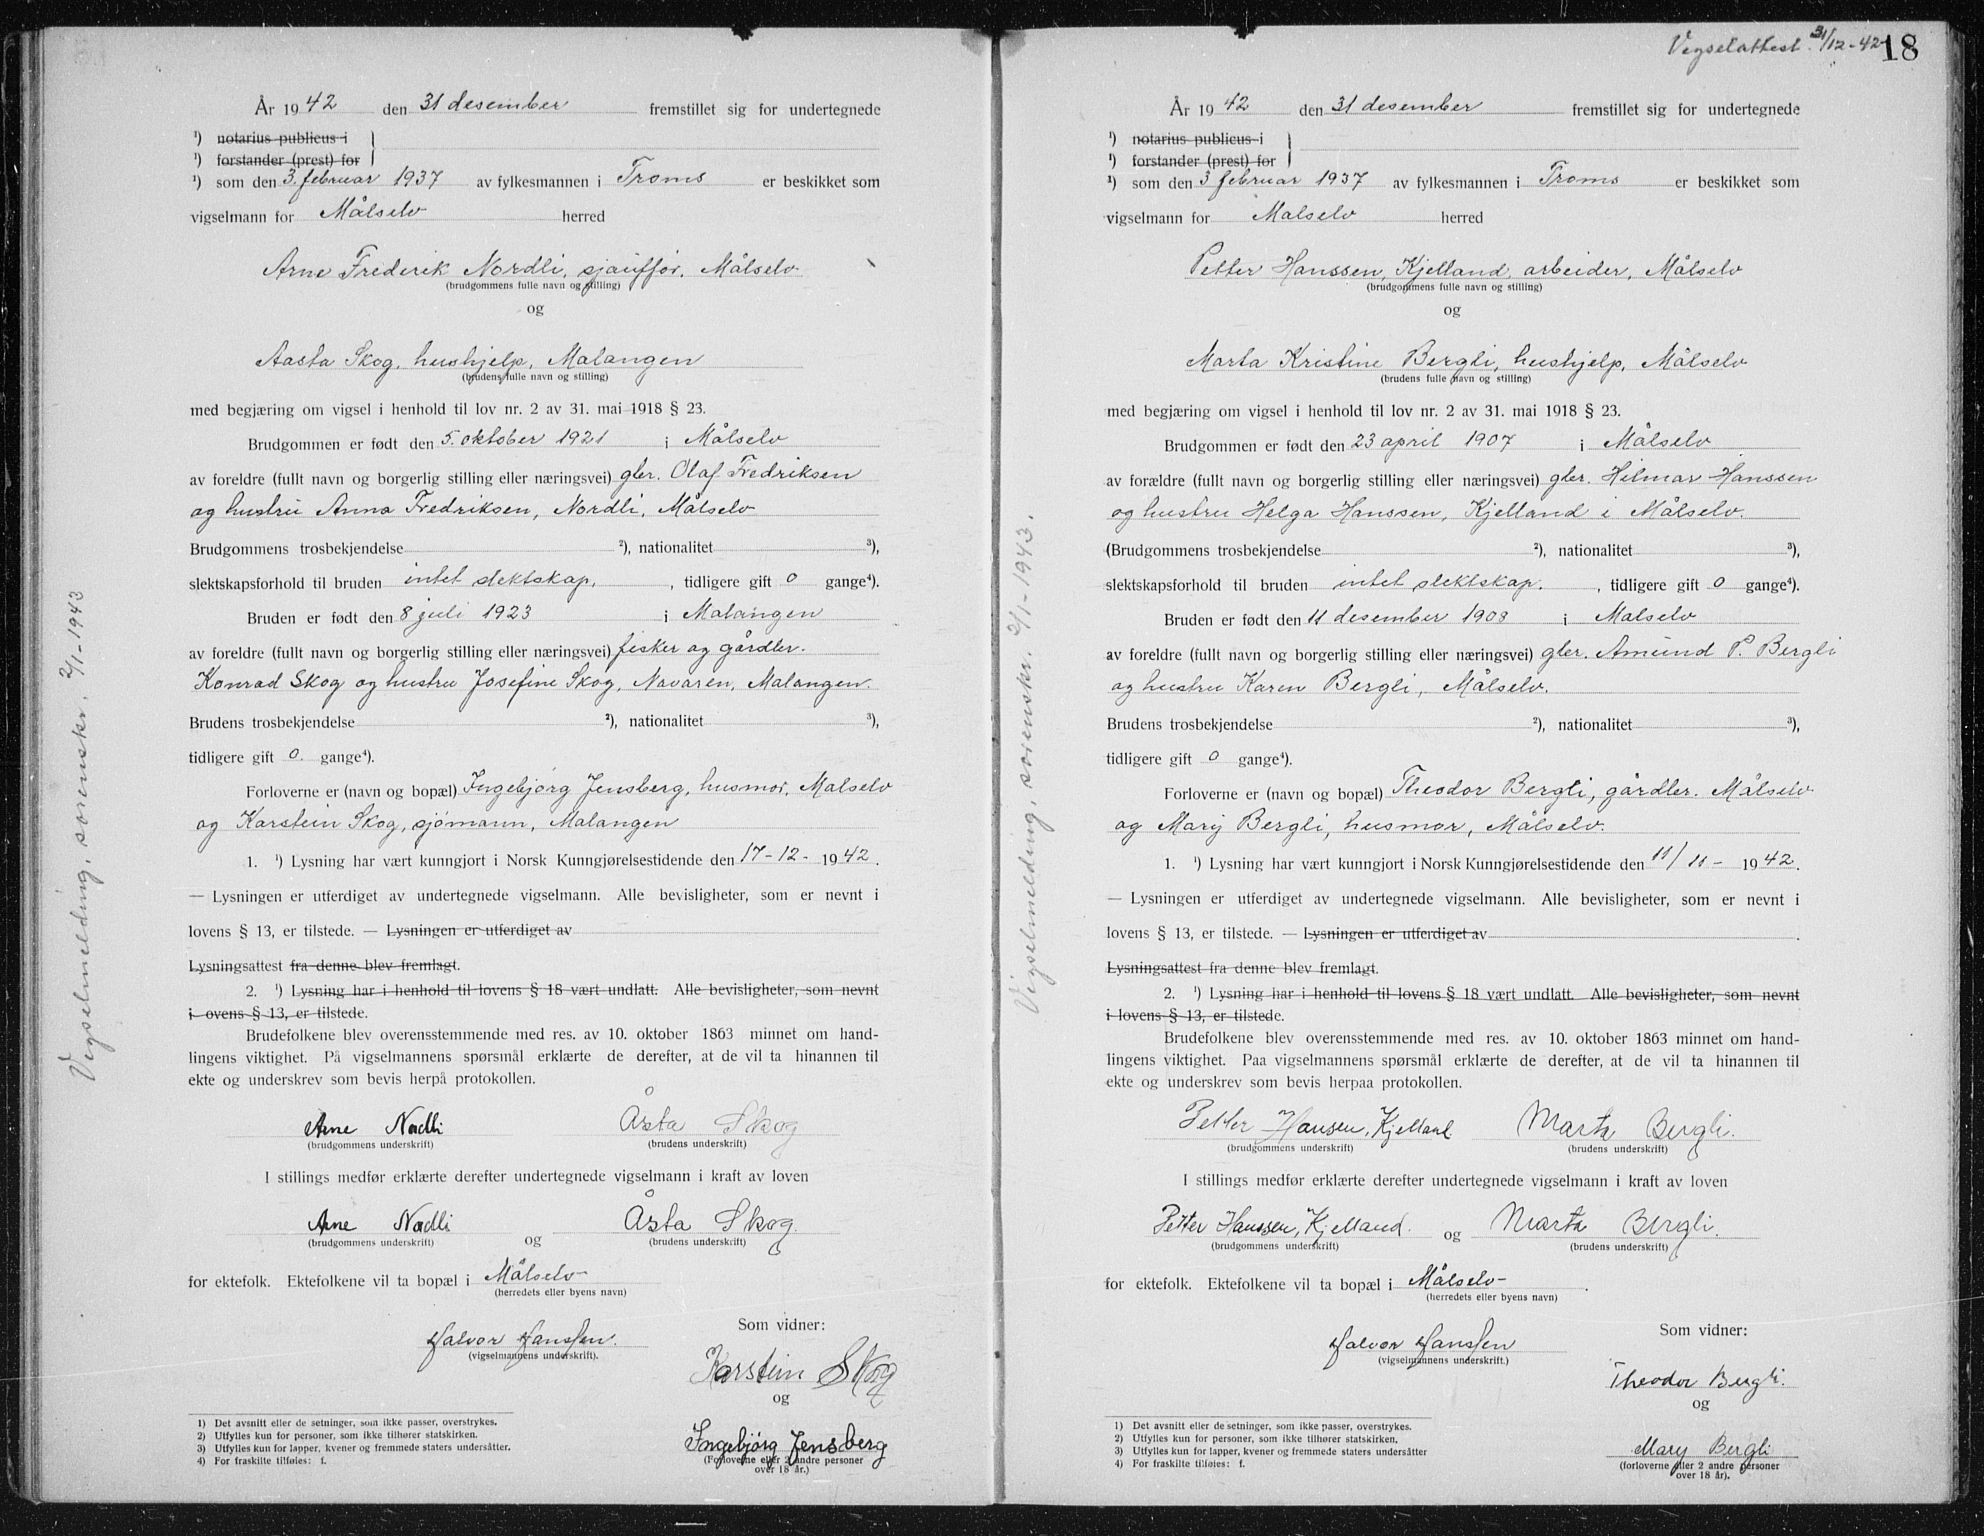 År 1942 den 31 desember fremstillet sig for undertegnede
¹) notarius publicus i
¹) forstander (prest) for
¹) som den 3. februar 1937 av fylkesmannen i Troms er beskikket som
vigselmann for Målselv herred
Arne Frederik Nordli, sjauffør, Målselv
(brudgommens fulle navn og stilling)
og
Aasta Skog, hushjelp, Malangen
(brudens fulle navn og stilling)
med begjæring om vigsel i henhold til lov nr. 2 av 31. mai 1918 § 23.
Brudgommen er født den 5. oktober 1921 i Målselv
av foreldre (fullt navn og borgerlig stilling eller næringsvei) gbr. Olaf Fredriksen
og hustru Anna Fredriksen, Nordli, Målselv
Brudgommens trosbekjendelse ²), nationalitet ³),
slektskapsforhold til bruden intet slektskap, , tidligere gift 0 gange⁴).
Bruden er født den 8 juli 1923 i Malangen
av foreldre (fullt navn og borgerlig stilling eller næringsvei) fisker og gårdbr.
Konrad Skog og hustru Josefine Skog, Navaren, Malangen.
Brudens trosbekjendelse ²), nationalitet ³),
tidligere gift 0. gange⁴).
Forloverne er (navn og bopæl) Ingebjørg Jensberg, husmor, Målselv
og Karstein Skog, sjømann, Malangen
1. ¹) Lysning har vært kunngjort i Norsk Kunngjørelsestidende den 17-12- 1942.
— Lysningen er utferdiget av undertegnede vigselmann. Alle bevisligheter, som er nevnt i
lovens § 13, er tilstede. — Lysningen er utferdiget av
Lysningsattest fra denne blev fremlagt.
2. ¹) Lysning har i henhold til lovens § 18 vært undlatt. Alle bevisligheter, som nevnt
i ovens § 13, er tilstede.
Brudefolkene blev overensstemmende med res. av 10. oktober 1863 minnet om hand-
lingens viktighet. På vigselmannens spørsmål erklærte de derefter, at de vil ta hinannen til
ekte og underskrev som bevis herpå protokollen.
Arne Nordli Åsta Skog
(brudgommens underskrift) (brudens underskrift)
I stillings medfør erklærte derefter undertegnede vigselmann i kraft av loven
Arne Nordli og Åsta Skog
(brudgommens underskrift) (brudens underskrift)
for ektefolk. Ektefolkene vil ta bopæl i Målselv
(herredets eller byens navn)
Halvor Hanssen.
(vigselmannens underskrift).
Som vidner:
Karstein Skog
og
Ingebjørg Jensberg
(Forloverne eller 2 andre personer
over 18 år.)
1) Det avsnitt eller de setninger, som ikke passer, overstrykes.
2) Utfylles kun for personer, som ikke tilhører statskirken.
3) Utfylles kun for lapper, kvener og fremmede staters undersåtter.
4) For fraskilte tilføies: f.
Vigselmelding, sorenskr. 2/1-1943
Vigselattest 31/12-42
18
År 1942 den 31 desember fremstillet sig for undertegnede
¹) notarius publicus i
¹) forstander (prest) for
¹) som den 3 februar 1937 av fylkesmannen i Troms er beskikket som
vigselmann for Målselv herred
Petter Hanssen, Kjelland, arbeider, Målselv
(brudgommens fulle navn og stilling)
og
Marta Kristine Bergli, hushjelp, Målselv
(brudens fulle navn og stilling)
med begjæring om vigsel i henhold til lov nr. 2 av 31. mai 1918 § 23.
Brudgommen er født den 23 april 1907 i Målselv
av forældre (fullt navn og borgerlig stilling eller næringsvei) gbr. Hilmar Hanssen
og hustru Helga Hanssen, Kjelland i Målselv.
(Brudgommens trosbekjendelse ²), nationalitet ³),
slektskapsforhold til bruden intet slektskap. , tidligere gift 0 gange⁴).
Bruden er født den 11 desember 1908 i Målselv
av forældre (fullt navn og borgerlig stilling eller næringsvei) gbr. Amund P. Bergli
og hustru Karen Bergli, Målselv.
Brudens trosbekjendelse ²), nationalitet ³),
tidligere gift 0 gange⁴).
Forloverne er (navn og bopæl) Theodor Bergli, gårdbr. Målselv
og Mary Bergli, husmor, Målselv.
1. ¹) Lysning har vært kunngjort i Norsk Kunngjørelsestidende den 11/11- 1942.
— Lysningen er utferdiget av undertegnede vigselmann. Alle bevisligheter, som er nevnt i
lovens § 13, er tilstede. — Lysningen er utferdiget av .
Lysningsattest fra denne blev fremlagt.
2. ¹) Lysning har i henhold til lovens § 18 vært undlatt. Alle bevisligheter, som nevnt
i lovens § 13, er tilstede.
Brudefolkene blev overensstemmende med res. av 10. oktober 1863 minnet om hand-
lingens viktighet. Paa vigselmannens spørsmål erklærte de derefter, at de vil ta hinannen til
ekte og underskrev som bevis herpaa protokollen.
Petter Hansen, Kjelland Marta Bergli.
(brudgommens underskrift) (brudens underskrift)
I stillings medfør erklærte derefter undertegnede vigselmann i kraft av loven
Petter Hanssen, Kjelland. og Marta Bergli.
(brudgommens underskrift) (brudens underskrift)
for ektefolk. Ektefolkene vil ta bopæl i Målselv .
(herredets eller byens navn)
Halvor Hanssen
(vigselmannens underskrift.)
Som vidner:
Theodor Bergli.
og
Mary Bergli
(forloverne eller 2 andre personer
over 18 år).
1) Det avsnitt eller de setninger, som ikke passer, overstrykes.
2) Utfylles kun for personer, som ikke tilhører statskirken.
3) Utfylles kun for lapper, kvener og fremmede staters undersåtter
4) For fraskilte tilføies: f.
Vigselmelding, sorenskr. 2/1-1943.